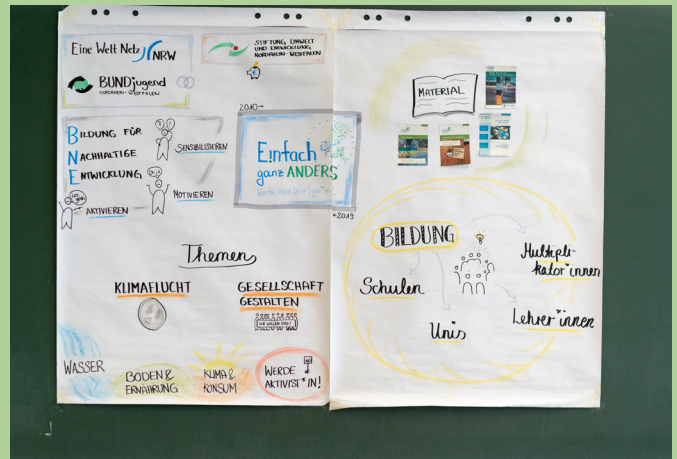 Eine Welt Netz NRW
BUNDjugend
NORDRHEIN-WESTFALEN
STIFTUNG UMWELT
UND ENTWICKLUNG
NORDRHEIN-WESTFALEN
€
BILDUNG FÜR
NACHHALTIGE
ENTWICKLUNG
SENSIBILISIEREN
MOTIVIEREN
AKTIVIEREN
2010→
E!nfach
ganz ANDERS
→2019
Themen
KLIMAFLUCHT
GESELLSCHAFT
GESTALTEN
WIR WOLLEN DAS!
WASSER
BODEN &
ERNÄHRUNG
KLIMA &
KONSUM
WERDE
AKTIVIST*IN!
MATERIAL
BILDUNG
Schulen
Unis
Multipli-
kator*innen
Lehrer*innen